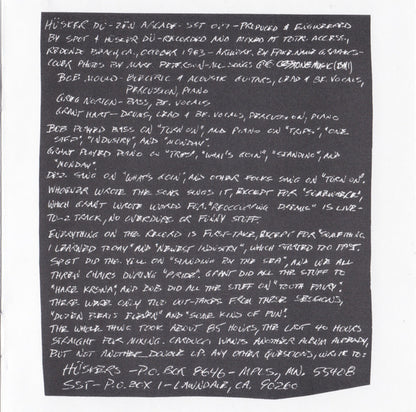 HÜSKER DÜ - ZEN ARCADE - SST 027 - PRODUCED & ENGINEERED
BY SPOT & HÜSKER DÜ - RECORDED AND MIXED AT TOTAL ACCESS,
REDONDO BEACH, CA., OCTOBER 1983 - ARTWORK BY FAKE NAME GRAPHX -
COVER PHOTOS BY MARK PETERSON - ALL SONGS © CESSTONE MUSIC (BMI)
BOB MOULD - ELECTRIC & ACOUSTIC GUITARS, LEAD & BK. VOCALS,
PERCUSSION, PIANO
GREG NORTON - BASS, BK. VOCALS
GRANT HART - DRUMS, LEAD & BK. VOCALS, PERCUSSION, PIANO
BOB PLAYED BASS ON "TURN ON", AND PIANO ON "TRIPS", "ONE
STEP", "INDUSTRY", AND "MONDAY".
GRANT PLAYED PIANO ON "TRIPS", "WHAT'S GOIN", "STANDING", AND
"MONDAY".
DEZ SUNG ON "WHAT'S GOIN", AND OTHER FOLKS SUNG ON "TURN ON".
WHOEVER WROTE THE SONG SINGS IT, EXCEPT FOR "SOMEWHERE",
WHICH GRANT WROTE WORDS FOR. "REOCCURRING DREAMS" IS LIVE-
TO-2 TRACK, NO OVERDUBS OR FUNNY STUFF.
EVERYTHING ON THE RECORD IS FIRST-TAKE, EXCEPT FOR "SOMETHING
I LEARNED TODAY" AND "NEWEST INDUSTRY", WHICH STARTED TOO FAST.
SPOT DID THE YELL ON "STANDING BY THE SEA", AND WE ALL
THREW CHAIRS DURING "PRIDE". GRANT DID ALL THE STUFF TO
"HARE KRSNA", AND BOB DID ALL THE STUFF ON "TOOTH FAIRY".
THERE WERE ONLY TWO OUT-TAKES FROM THESE SESSIONS,
"DOZEN BEATS ELEVEN" AND "SOME KIND OF FUN".
THE WHOLE THING TOOK ABOUT 85 HOURS, THE LAST 40 HOURS
STRAIGHT FOR MIXING. CARDUCCI WANTS ANOTHER ALBUM ALREADY,
BUT NOT ANOTHER DOUBLE LP. ANY OTHER QUESTIONS, WRITE TO:
HÜSKERS - P.O. BOX 8646 - MPLS., MN. 55408
SST - P.O. BOX 1 - LAWNDALE, CA. 90260